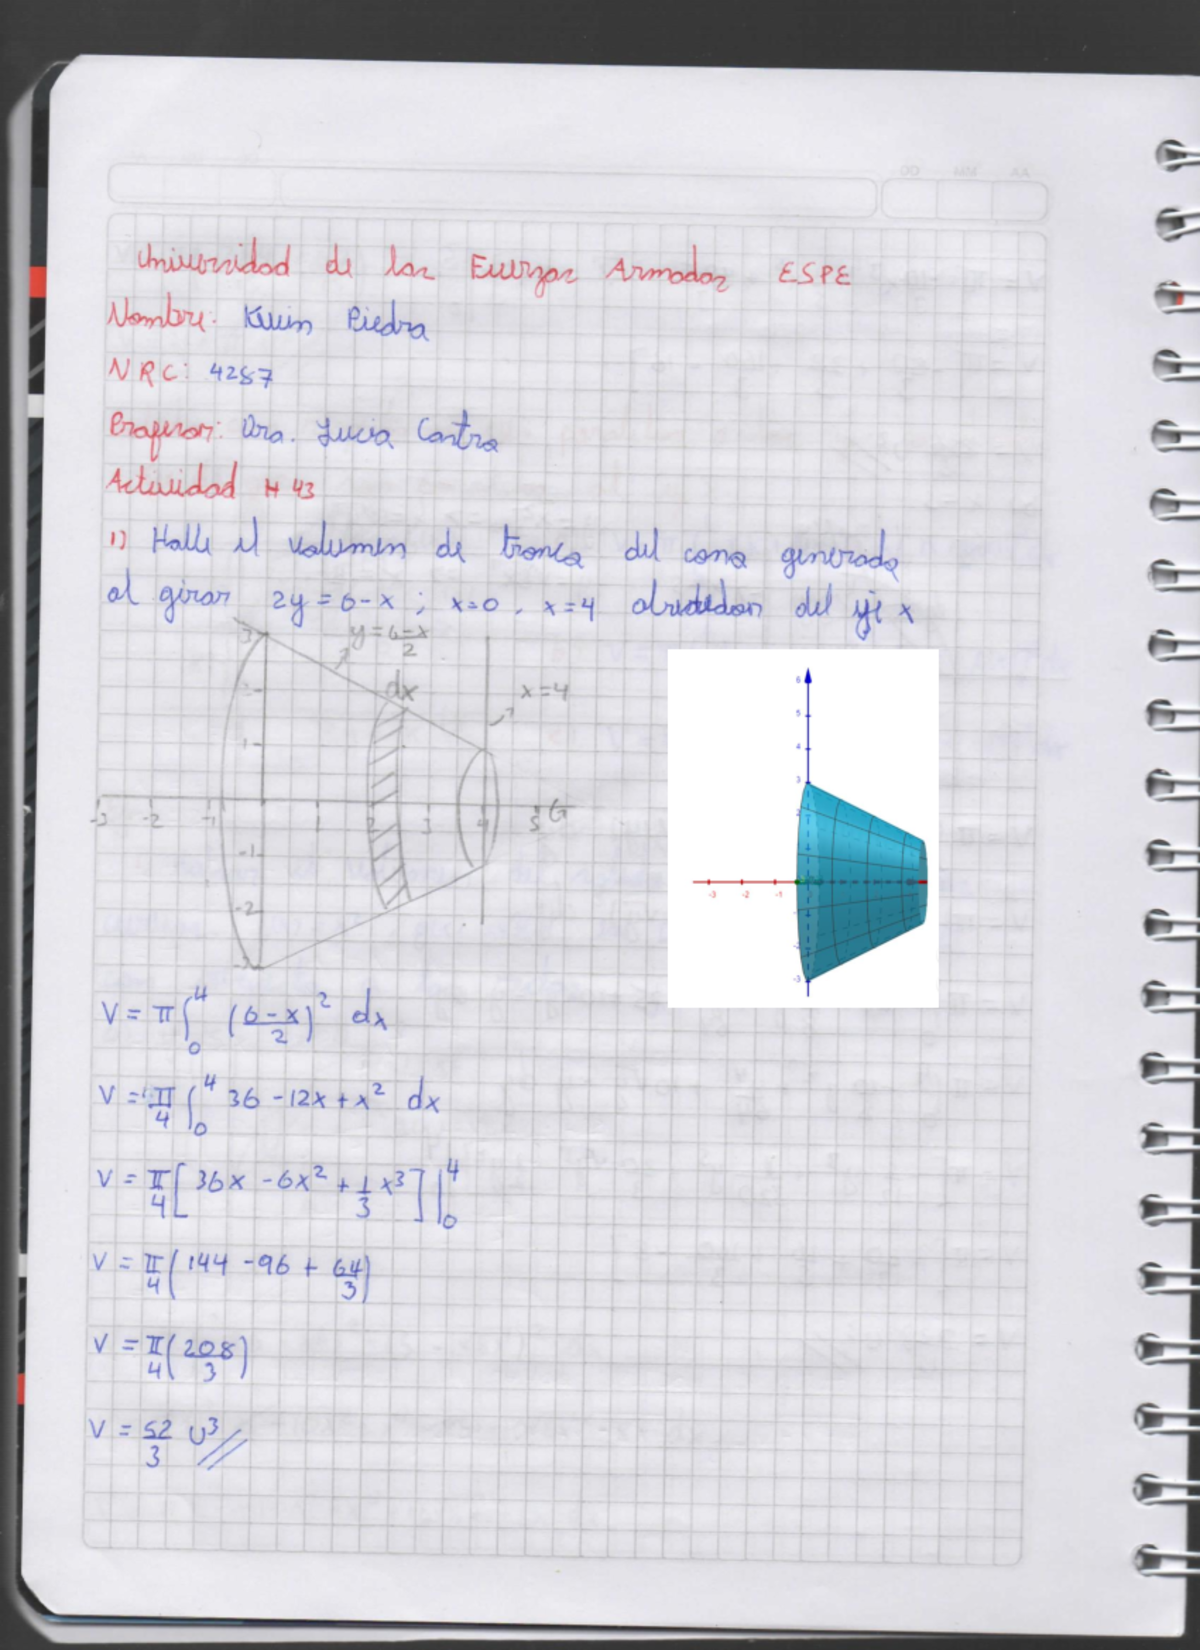 Universidad de las Fuerzas Armadas ESPE
Nombre: Kevin Piedra
NRC: 4287
Profesor: Dra. Lucia Castro
Actividad # 43
1) Halle el volumen de tronco del cono generado
al girar 2y = 6-x ; x=0 , x=4 alrededor del eje x
y = 6-x/2
dx
x=4
3
2
1
-3 -2 -1 1 2 3 4 5 6
-1
-2
-3
6
5
4
3
2
-3 -2 -1
-2
-3
V = π ∫₀⁴ (6-x/2)² dx
V = π/4 ∫₀⁴ 36 - 12x + x² dx
V = π/4 [36x - 6x² + 1/3 x³] |₀⁴
V = π/4 (144 - 96 + 64/3)
V = π/4 (208/3)
V = 52/3 U³